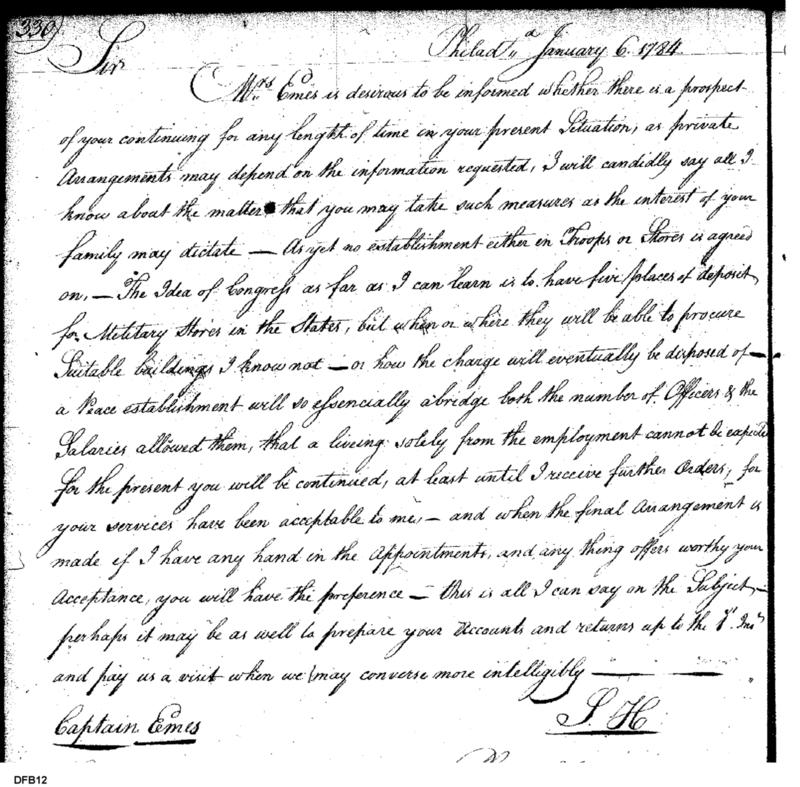 330)
Philad.a January 6. 1784
Sir
Mrs. Emes is desirous to be informed whether there is a prospect
of your continuing for any lenght of time in your present Situation, as private
Arrangements may depend on the information requested, I will candidly say all I
know about the matter that you may take such measures as the interest of your
family may dictate — As yet no establishment either in Troops or Stores is agreed
on, — The Idea of Congress as far as I can learn is to have five places of deposit
for Military Stores in the States, but when or where they will be able to procure
Suitable buildings I know not — or how the charge will eventually be disposed of —
a Peace establishment will so essencially abridge both the number of Officers & the
Salaries allowed them, that a liveing solely from the employment cannot be expected
for the present you will be continued, at least until I receive further Orders, for
your services have been acceptable to me, — and when the final Arrangement is
made if I have any hand in the Appointments, and any thing offers worthy your
Acceptance, you will have the preference — this is all I can say on the Subject, —
perhaps it may be as well to prepare your Accounts and returns up to the 1st. Inst
and pay us a visit when we may converse more intelligibly —
S. H
Captain Emes
DFB12